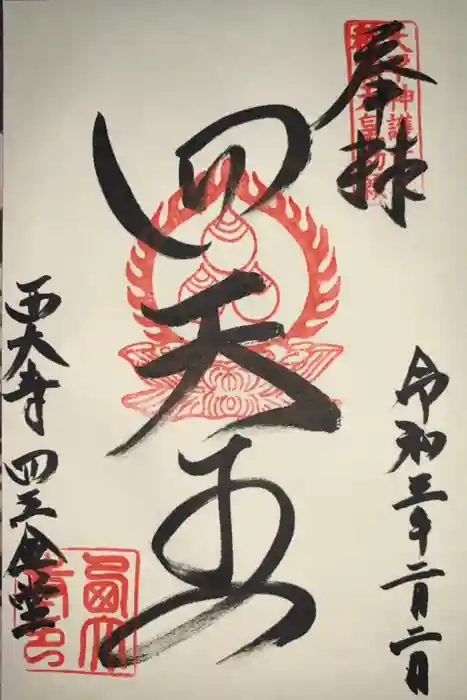 奉拝
令和三年二月二日
四天王
西大寺 四王金堂